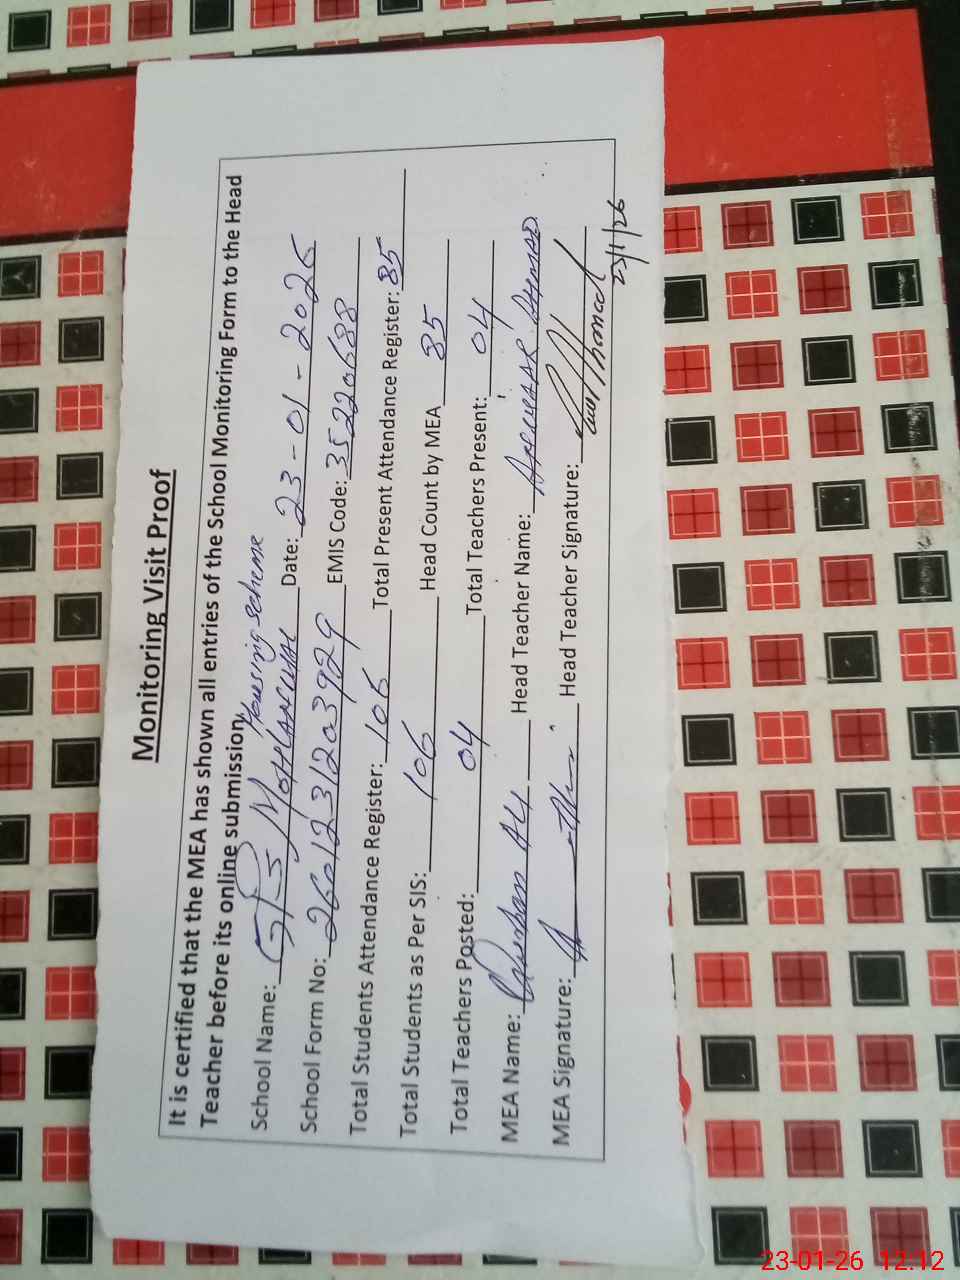 Monitoring Visit Proof
It is certified that the MEA has shown all entries of the School Monitoring Form to the Head
Teacher before its online submission.
Housing Scheme
School Name: GPS Mohlanwal Date: 23-01-2026
School Form No: 2601231203929 EMIS Code: 35220688
Total Students Attendance Register: 106 Total Present Attendance Register: 85
Total Students as Per SIS: 106 Head Count by MEA 85
Total Teachers Posted: 04 Total Teachers Present: 04
MEA Name: Ali Head Teacher Name: Ahmad
MEA Signature: Head Teacher Signature:
23/1/26
23-01-26 12:12